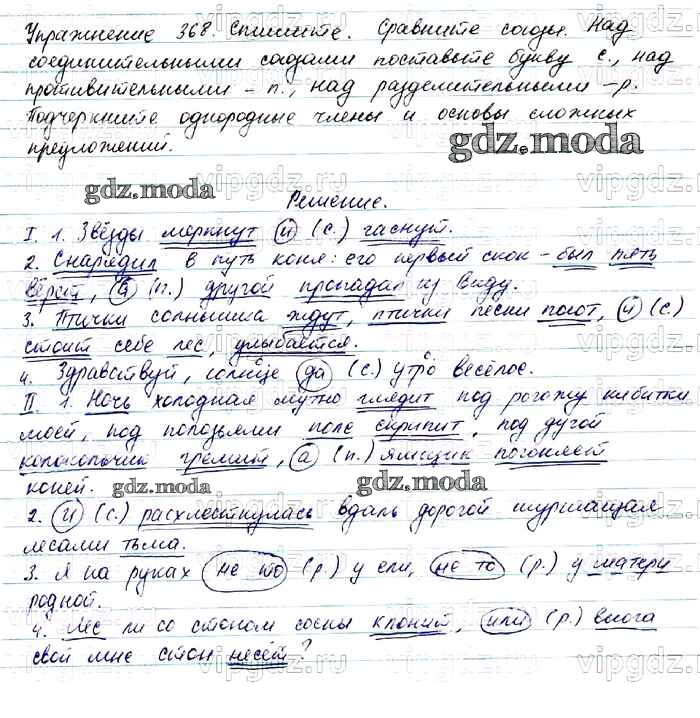 Упражнение 368. Спишите. Сравните союзы. Над
соединительными союзами поставьте букву с., над
противительными – п., над разделительными – р.
Подчеркните однородные члены и основы сложных
предложений.
gdz.moda
gdz.moda
Решение.
I. 1. Звёзды меркнут и (с.) гаснут.
2. Снарядил в путь коня: его первый скок – был пять
вёрст, а (п.) другой пропадал из виду.
3. Птички солнышка ждут, птички песни поют, и (с.)
стоит себе лес, улыбается.
4. Здравствуй, солнце да (с.) утро весёлое.
II. 1. Ночь холодная мутно глядит под рогожу кибитки
моей, под полозьями поле скрипит, под дугой
колокольчик гремит, а (п.) ямщик погоняет
коней.
gdz.moda
gdz.moda
2. И (с.) расхлестнулась вдаль дорогой шуршащая
лесами тьма.
3. Я на руках не то (р.) у ели, не то (р.) у матери
родной.
4. Лес ли со стоном сосны клонит, или (р.) вьюга
свой мне стон несёт?
vipgdz.ru